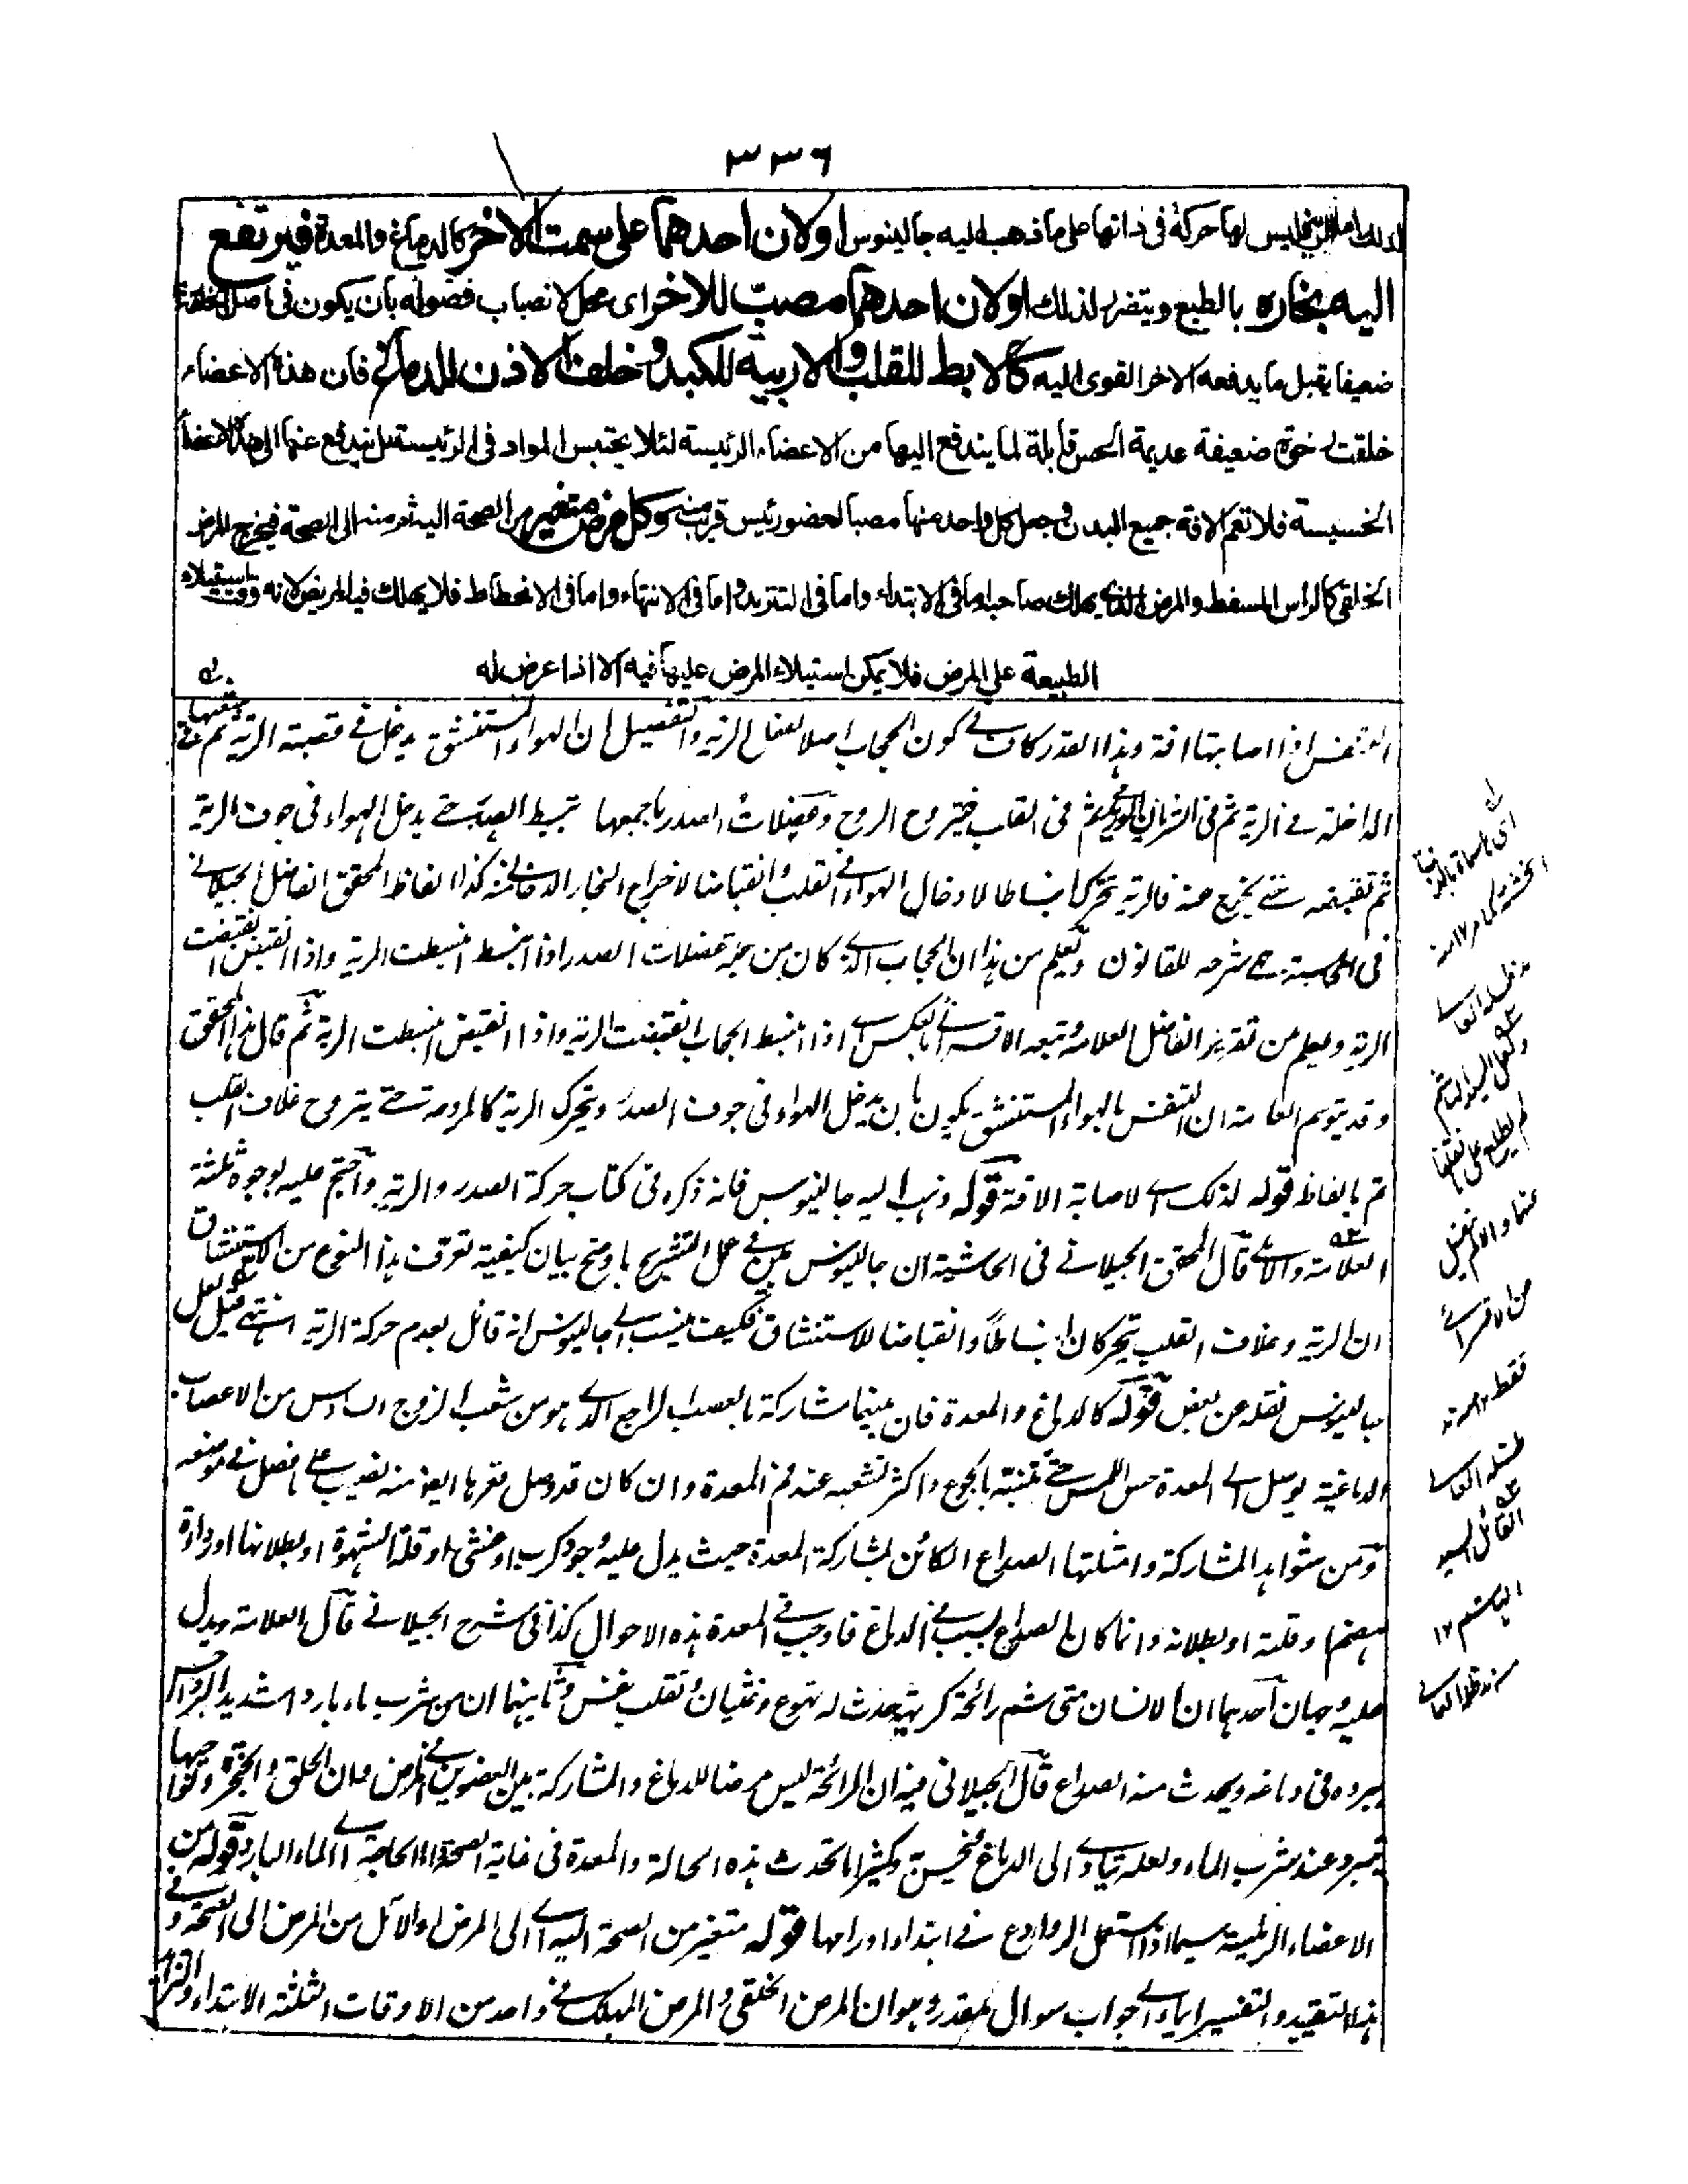 ٣٣٦
ليس لها حركة فى ذاتها على ما ذهب اليه جالينوس اولان احدهما على سمت الاخر كالدماغ والمعدة فيرتفع
اليه بخاره بالطبع ويتضرر لذلك اولان احدهما مصبّ للاخر اى محل لانصباب فضوله بان يكون فى اصل الخلقة
ضعيفا يقبل ما يدفعه الاخر القوى اليه كالابط للقلب والاربية للكبد وخلف الاذن للدماغ فان هذه الاعضاء
خلقت رخوة ضعيفة عديمة الحس قابلة لما يندفع اليها من الاعضاء الرئيسة لئلا يحتبس المواد فى الرئيسة بل يندفع عنها الى هذه الاعضاء
الخسيسة فلا تعم الافة جميع البدن وجعل كل واحد منها مصبا لعضو رئيس قريب منه وكل مرض متغير من الصحة اليه ثم منه الى الصحة فيخرج المرض
الخلقى كالراس المسفط والمرض الذى يهلك صاحبه اما فى الابتداء واما فى التزيد واما فى الانتهاء واما فى الانحطاط فلا يهلك فيه المريض لانه وقت استيلاء
الطبيعة على المرض فلا يمكن استيلاء المرض عليها فيه الا اذا عرض له
اذا اصابتها افة وهذا القدر كاف فى كون الحجاب اصلا لفعال الرية والتفصيل ان الهواء المستنشق يدخل فى قصبة الرية ثم فى
الداخلة فى الرية ثم فى الشريان الوريدى ثم فى القلب فيتروح الروح وعضلات الصدر باجمعها تبسط الصدر حتى يدخل الهواء فى جوف الرية
ثم تقبضه حتى يخرج عنه فالرية تتحرك انبساطا لادخال الهواء فى القلب وانقباضا لاخراج البخار الدخانى منه كذا الفاظ المحقق الفاضل الجيلانى
فى شرحه للقانون وتعلم من هذا ان الحجاب الذى كان من جملة عضلات الصدر اذا انبسط انبسطت الرية واذا انقبض انقبضت
الرية ويعلم من تقرير الفاضل العلامة وتبعه الاقسرائى بالعكس اى اذا انبسط الحجاب انقبضت الرية واذا انقبض انبسطت الرية ثم قال هذا المحقق
وقد يتوهم العامة ان التنفس بالهواء المستنشق يكون بان يدخل الهواء فى جوف الصدر ويتحرك الرية كالمروحة حتى يتروح غلاف القلب
تم بالفاظه قوله لذلك اى لاصابة الافة قوله ذهب اليه جالينوس فانه ذكره فى كتاب حركة الصدر والرية واحتج عليه بوجوه ثلثة
العلامة قال المحقق الجيلانى فى الحاشية ان جالينوس بين فى عمل التشريح باوضح بيان كيفية تعرف هذا النوع من الاستنشاق
ان الرية وغلاف القلب يتحركان انبساطا وانقباضا للاستنشاق فكيف ينسب الى جالينوس انه قائل بعدم حركة الرية انتهى قيل لعل
جالينوس نقله عن بعض قوله كالدماغ والمعدة فان بينهما مشاركة بالعصب الراجع الذى هو من شعب الزوج السادس من الاعصاب
الدماغية يوصل الى المعدة حس اللمس حتى تتنبه بالجوع واكثر تشعبه عند فم المعدة وان كان قد وصل قعرها ايضا منه نصيب على ما فصل فى موضعه
ومن شواهد المشاركة وامثلتها الصداع الكائن لمشاركة المعدة حيث يدل عليه وجود كرب او غثى او قلة الشهوة او بطلانها او رداءة
هضم او قلته او بطلانه وانما كان الصداع بسبب فى الدماغ فاوجب فى المعدة هذه الاحوال كذا فى شرح الجيلانى قال العلامة ويدل
عليه وجهان احدهما ان الانسان متى شم رائحة كريهة يحدث له تهوع وغثيان وتقلب نفس وثانيهما ان من شرب ماء بارد شديد البرد
يبرده فى دماغه ويحدث منه الصداع قال الجيلانى فيه ان الرائحة ليس مرضا للدماغ والمشاركة بين العضوين فى المرض ولان الحلق والحنجرة ونواحيها
تبرد عند شرب الماء ولعله يتادى الى الدماغ فيحس به وكثيرا ما تحدث هذه الحالة والمعدة فى غاية الصحة الى الماء البارد قوله من
الاعضاء الرئيسة سيما اذا استعمل الروادع فى ابتداء اورامها قوله متغير من الصحة اليه اى الى المرض او الآئل من المرض الى الصحة و
هذا التقييد والتفسير ايماء الى جواب سوال مقدر وهو ان المرض الخلقى والمرض المهلك فى واحد من الاوقات الثلثة الابتداء والتزايد
من الاقسرائى
فقط ١٢ منه
القائل السيد
الهاشم ١٢